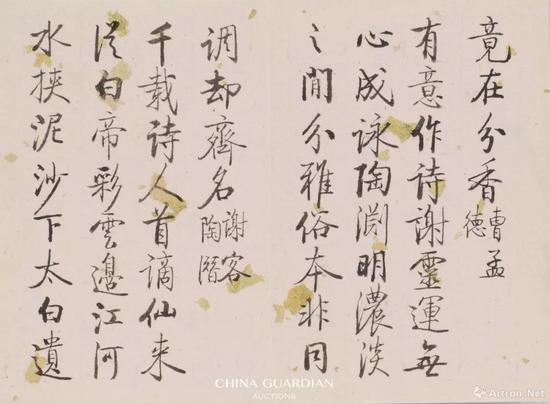 竟在分香曹孟德
有意作诗謝靈運無
心成詠陶淵明濃淡
之間分雅俗本非同
调却齊名謝客陶潛
千载诗人首谪仙来
従白帝彩雲邊江河
水挟泥沙下太白遺
CHINA GUARDIAN
AUCTIONS
Artron.Net